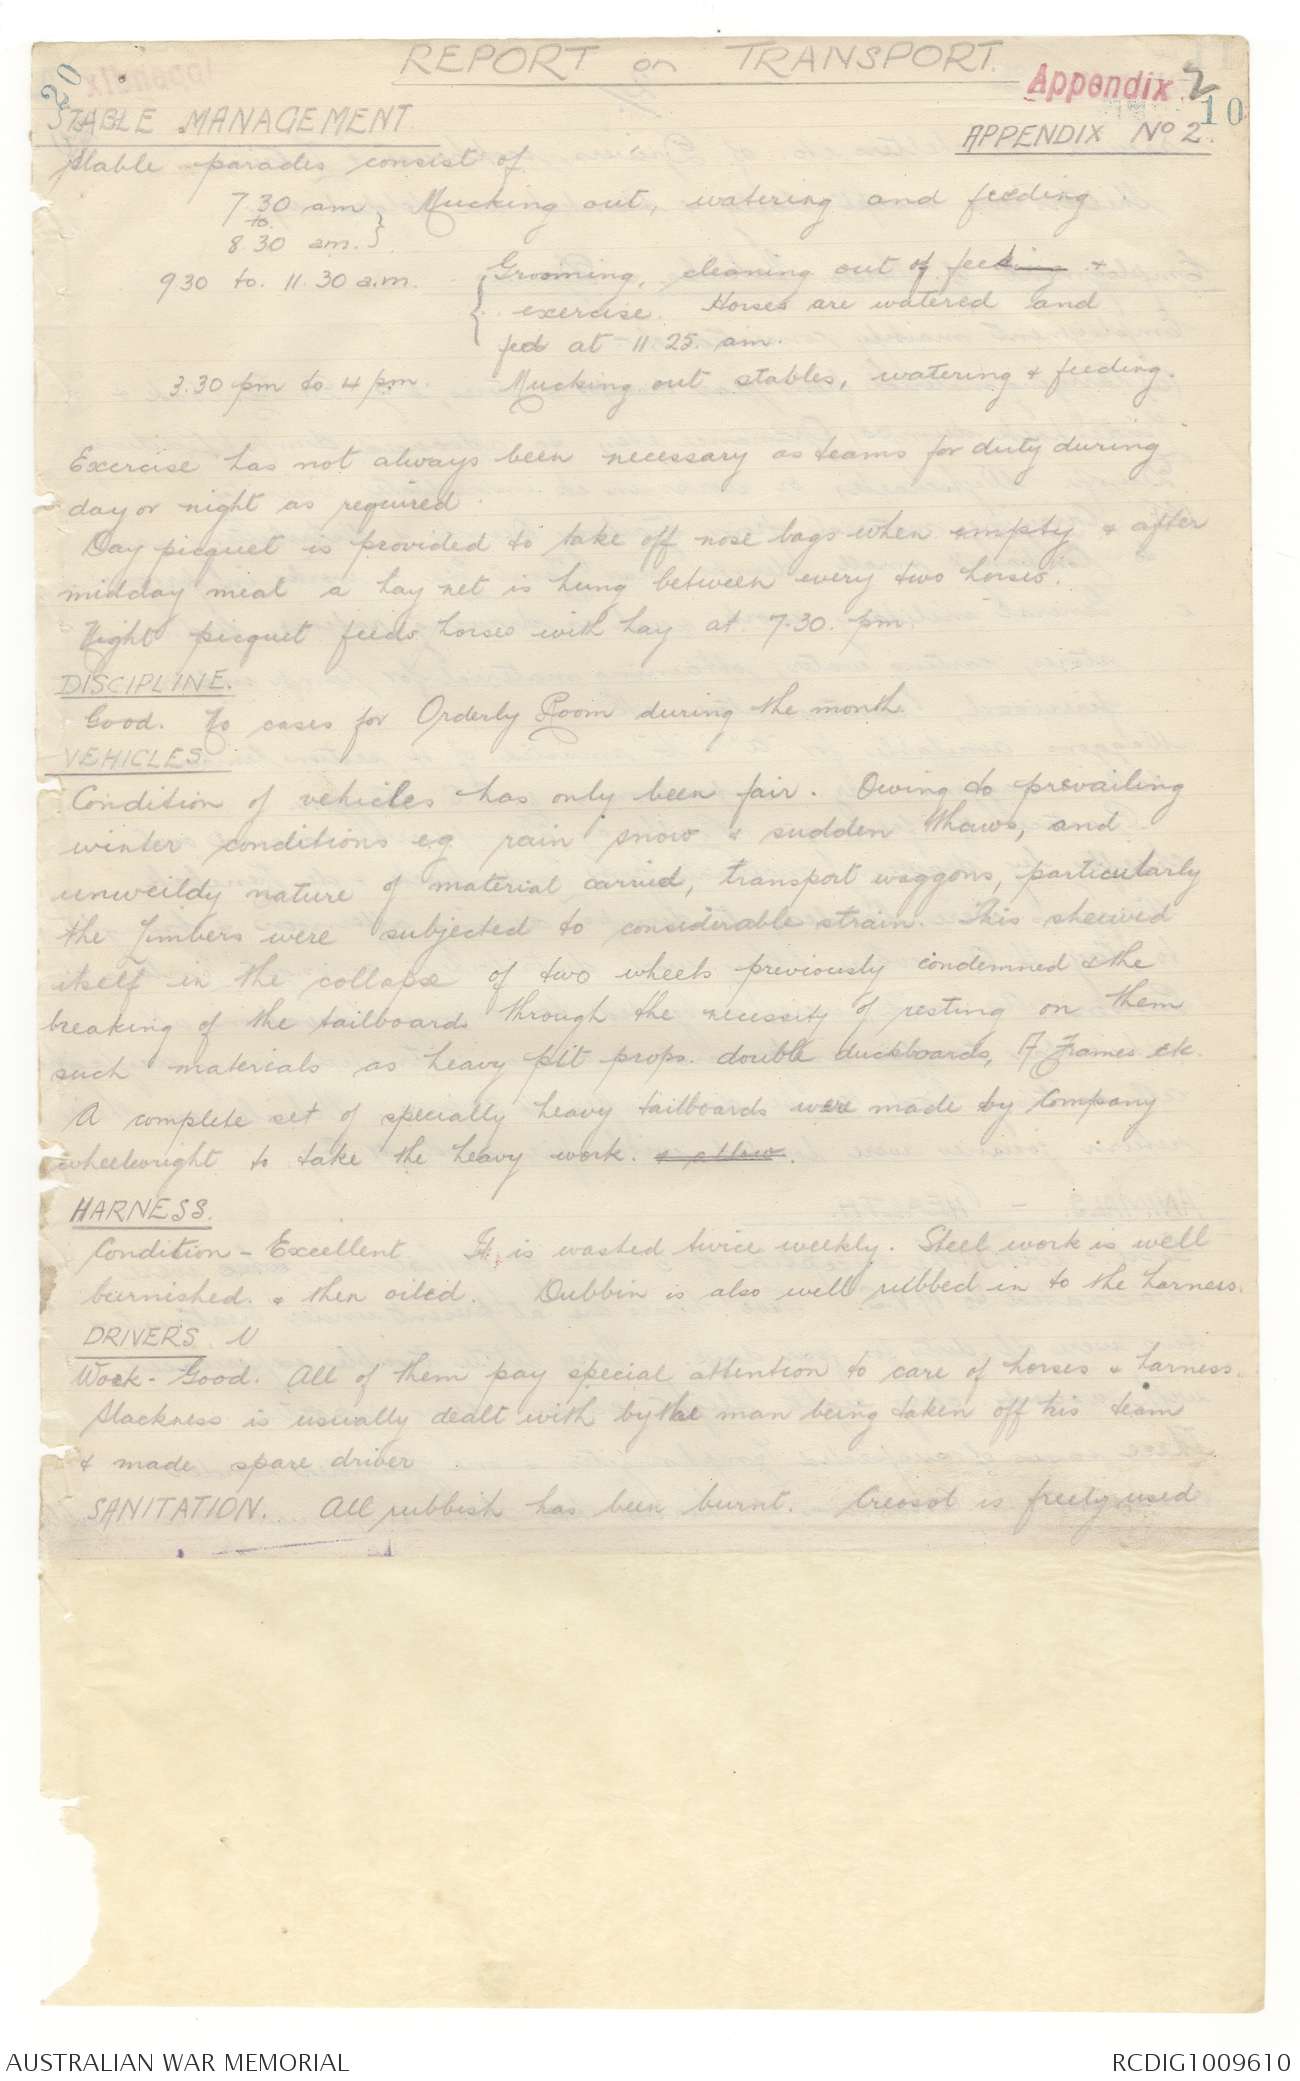 REPORT on TRANSPORT.
Appendix 2
20
10
STABLE MANAGEMENT
APPENDIX No 2.
Stable parades consist of
7.30 am to 8.30 am. } Mucking out, watering and feeding
9.30 to 11.30 a.m. { Grooming, cleaning out of feeding &
exercise. Horses are watered and
fed at 11.25 am.
3.30 pm to 4 pm. Mucking out stables, watering & feeding.
Exercise has not always been necessary as teams for duty during
day or night as required.
Day picquet is provided to take off nose bags when empty & after
midday meal a hay net is hung between every two horses.
Night picquet feeds horses with hay at 7.30. pm.
DISCIPLINE.
Good. No cases for Orderly Room during the month
VEHICLES.
Condition of vehicles has only been fair. Owing to prevailing
winter conditions eg rain snow & sudden thaws, and
unweildy nature of material carried, transport waggons, particularly
the Limbers were subjected to considerable strain. This shewed
itself in the collapse of two wheels previously condemned & the
breaking of the tailboards through the necessity of resting on them
such materials as heavy pit props. double duckboards, A Frames etc.
A complete set of specially heavy tailboards were made by Company
wheelwright to take the heavy work.
HARNESS.
Condition - Excellent It is washed twice weekly. Steel work is well
burnished. & then oiled. Dubbin is also well rubbed in to the harness.
DRIVERS
Work - Good. All of them pay special attention to care of horses & harness.
Slackness is usually dealt with by the man being taken off his team
& made spare driver
SANITATION. All rubbish has been burnt. Creosot is freely used
AUSTRALIAN WAR MEMORIAL
RCDIG1009610